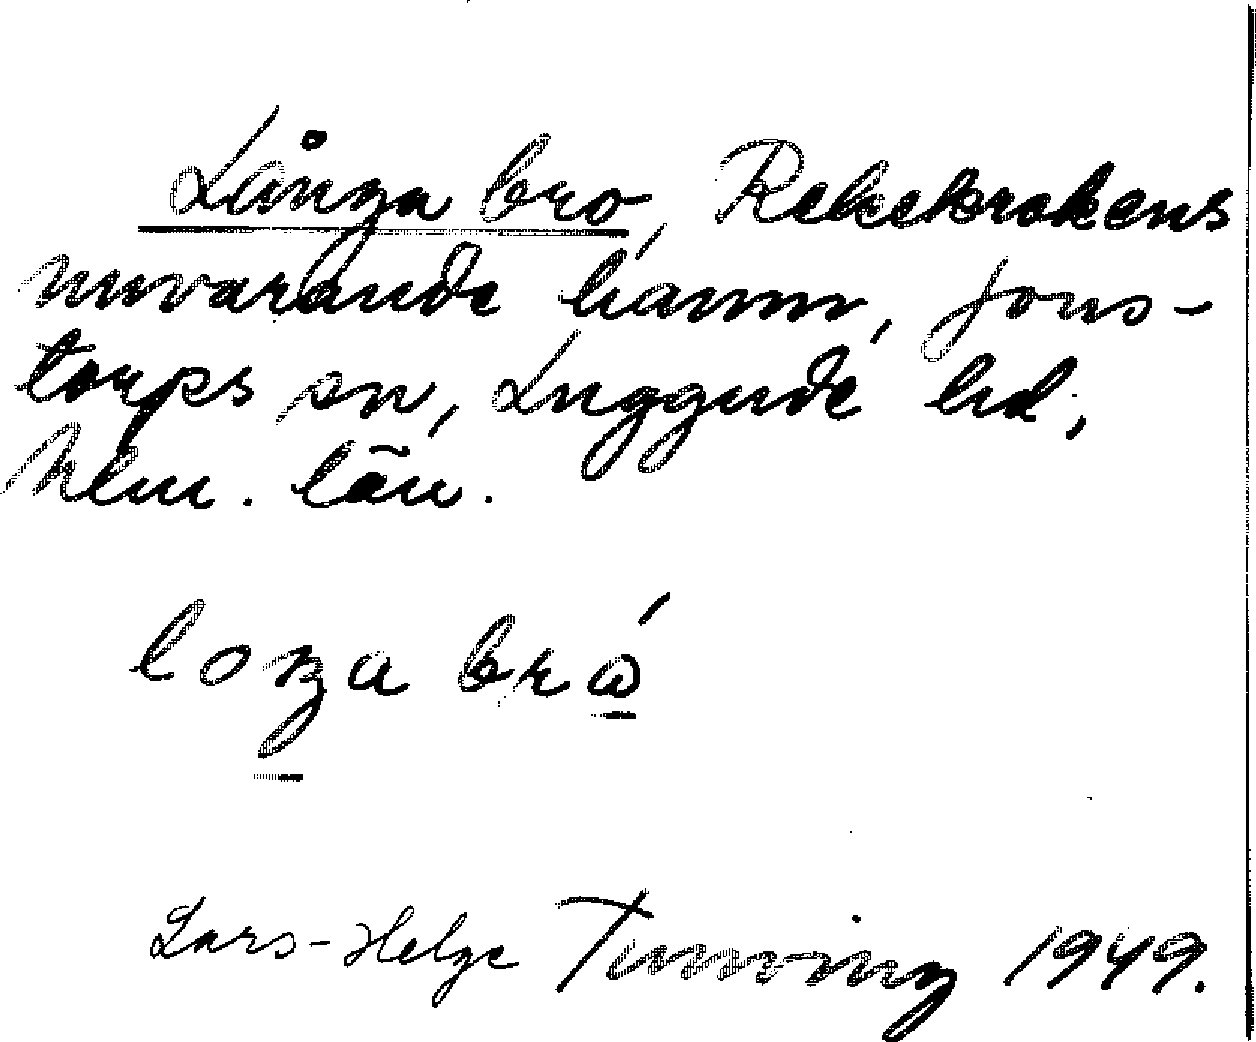 Långa bro, Rekekrokens
nuvarande hamn, Jons-
torps sn, Luggude hd,
Mlm. län.
loŋa brɷ́
Lars-Helge Tunving 1949.